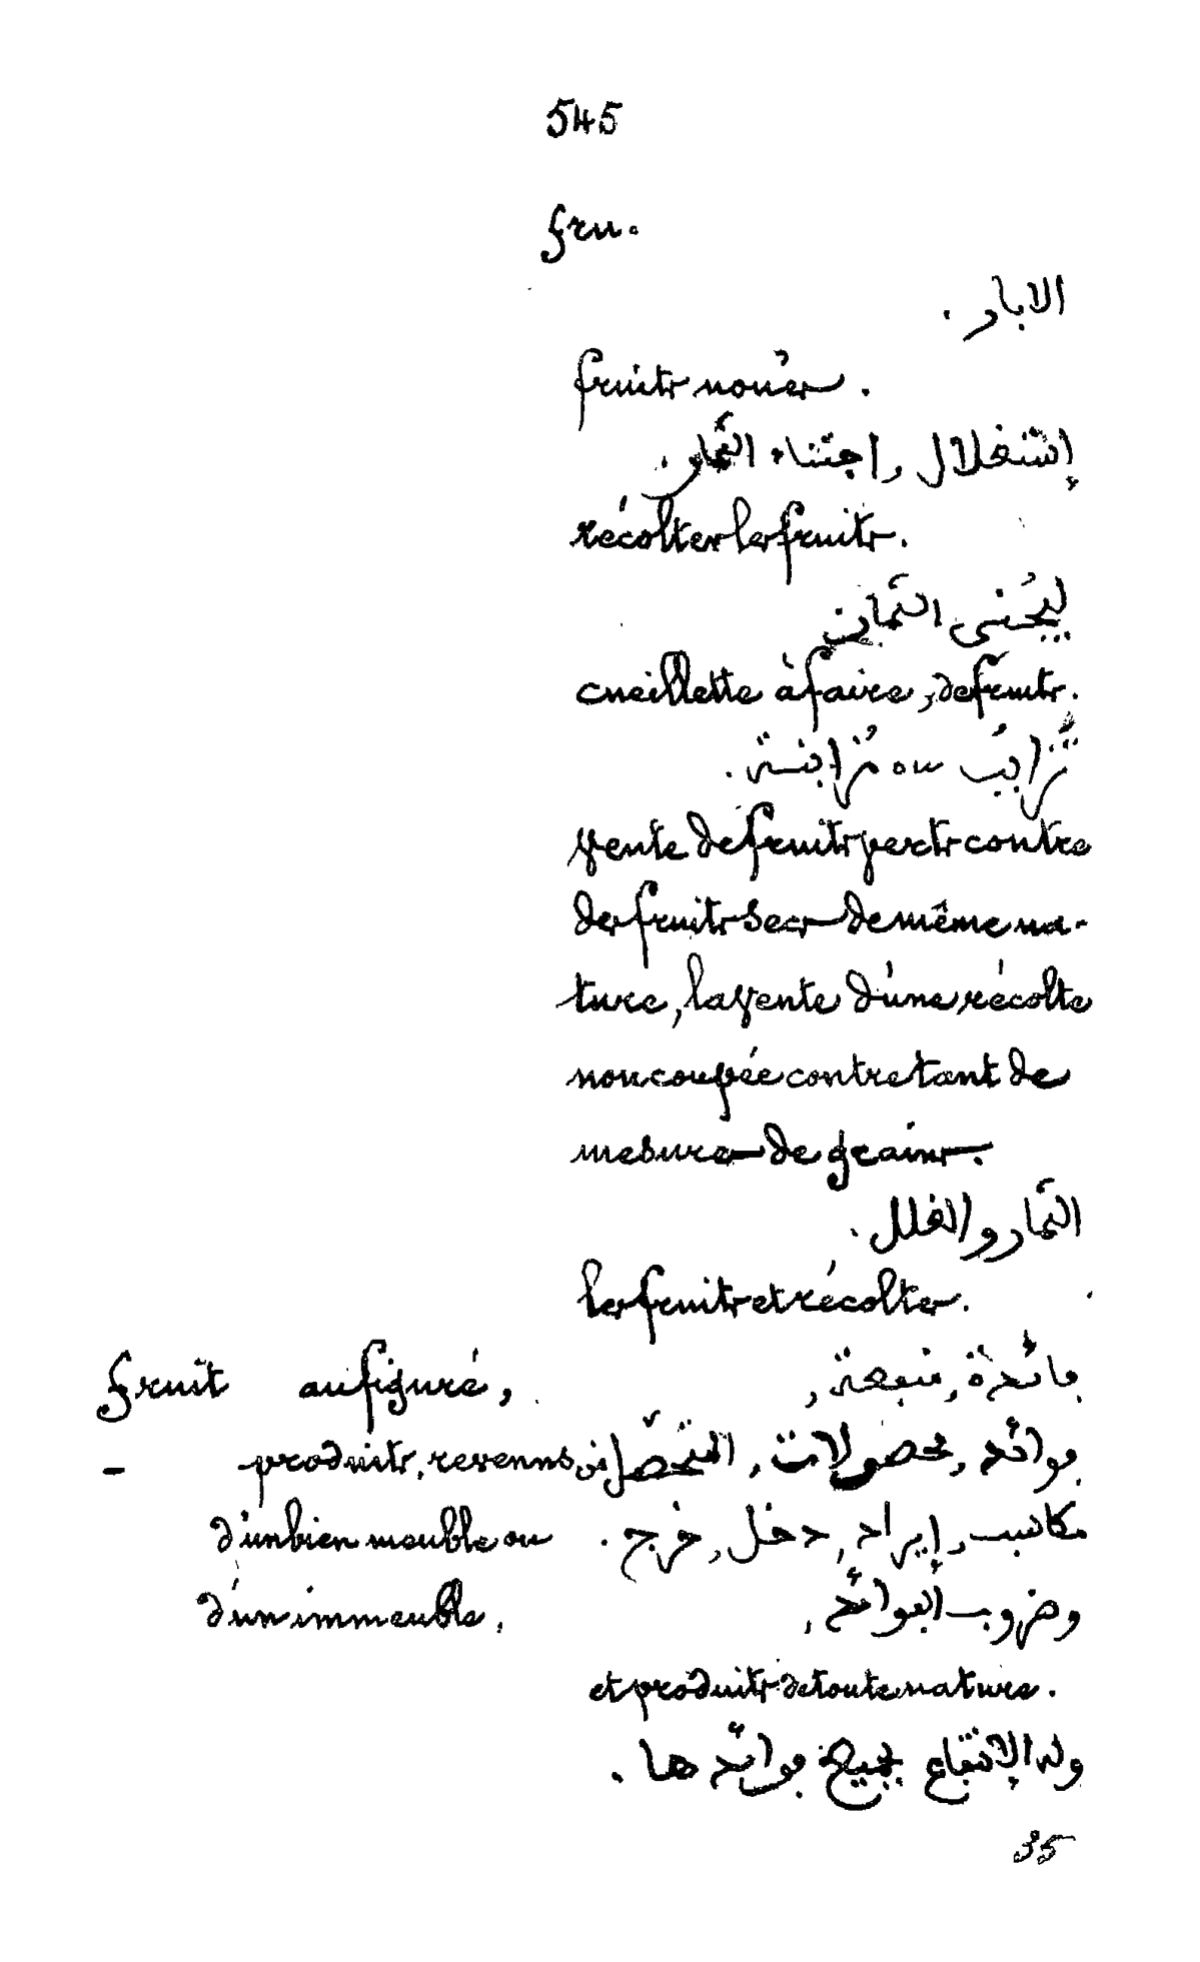 545
fru.
الابار.
fruits noués.
إستغلال, اجتناء الثمار.
récolter les fruits.
الثمار
cueillette à faire, de fruits.
ou مُزابنة.
vente de fruits verts contre
des fruits secs de même na-
ture, la vente d'une récolte
non coupée contre tant de
mesures de grains.
الثمار والغلل.
les fruits et récoltes.
fruit au figuré, فائدة, منفعة,
— produits, revenus فوائد, محصولات, المتحصّل من,
d'un bien meuble ou مكاسب, إيراد, دخل, خرج.
d'un immeuble, وضروب العوائد,
et produits de toute nature.
وله الإنتفاع بجميع فوائدها.
35